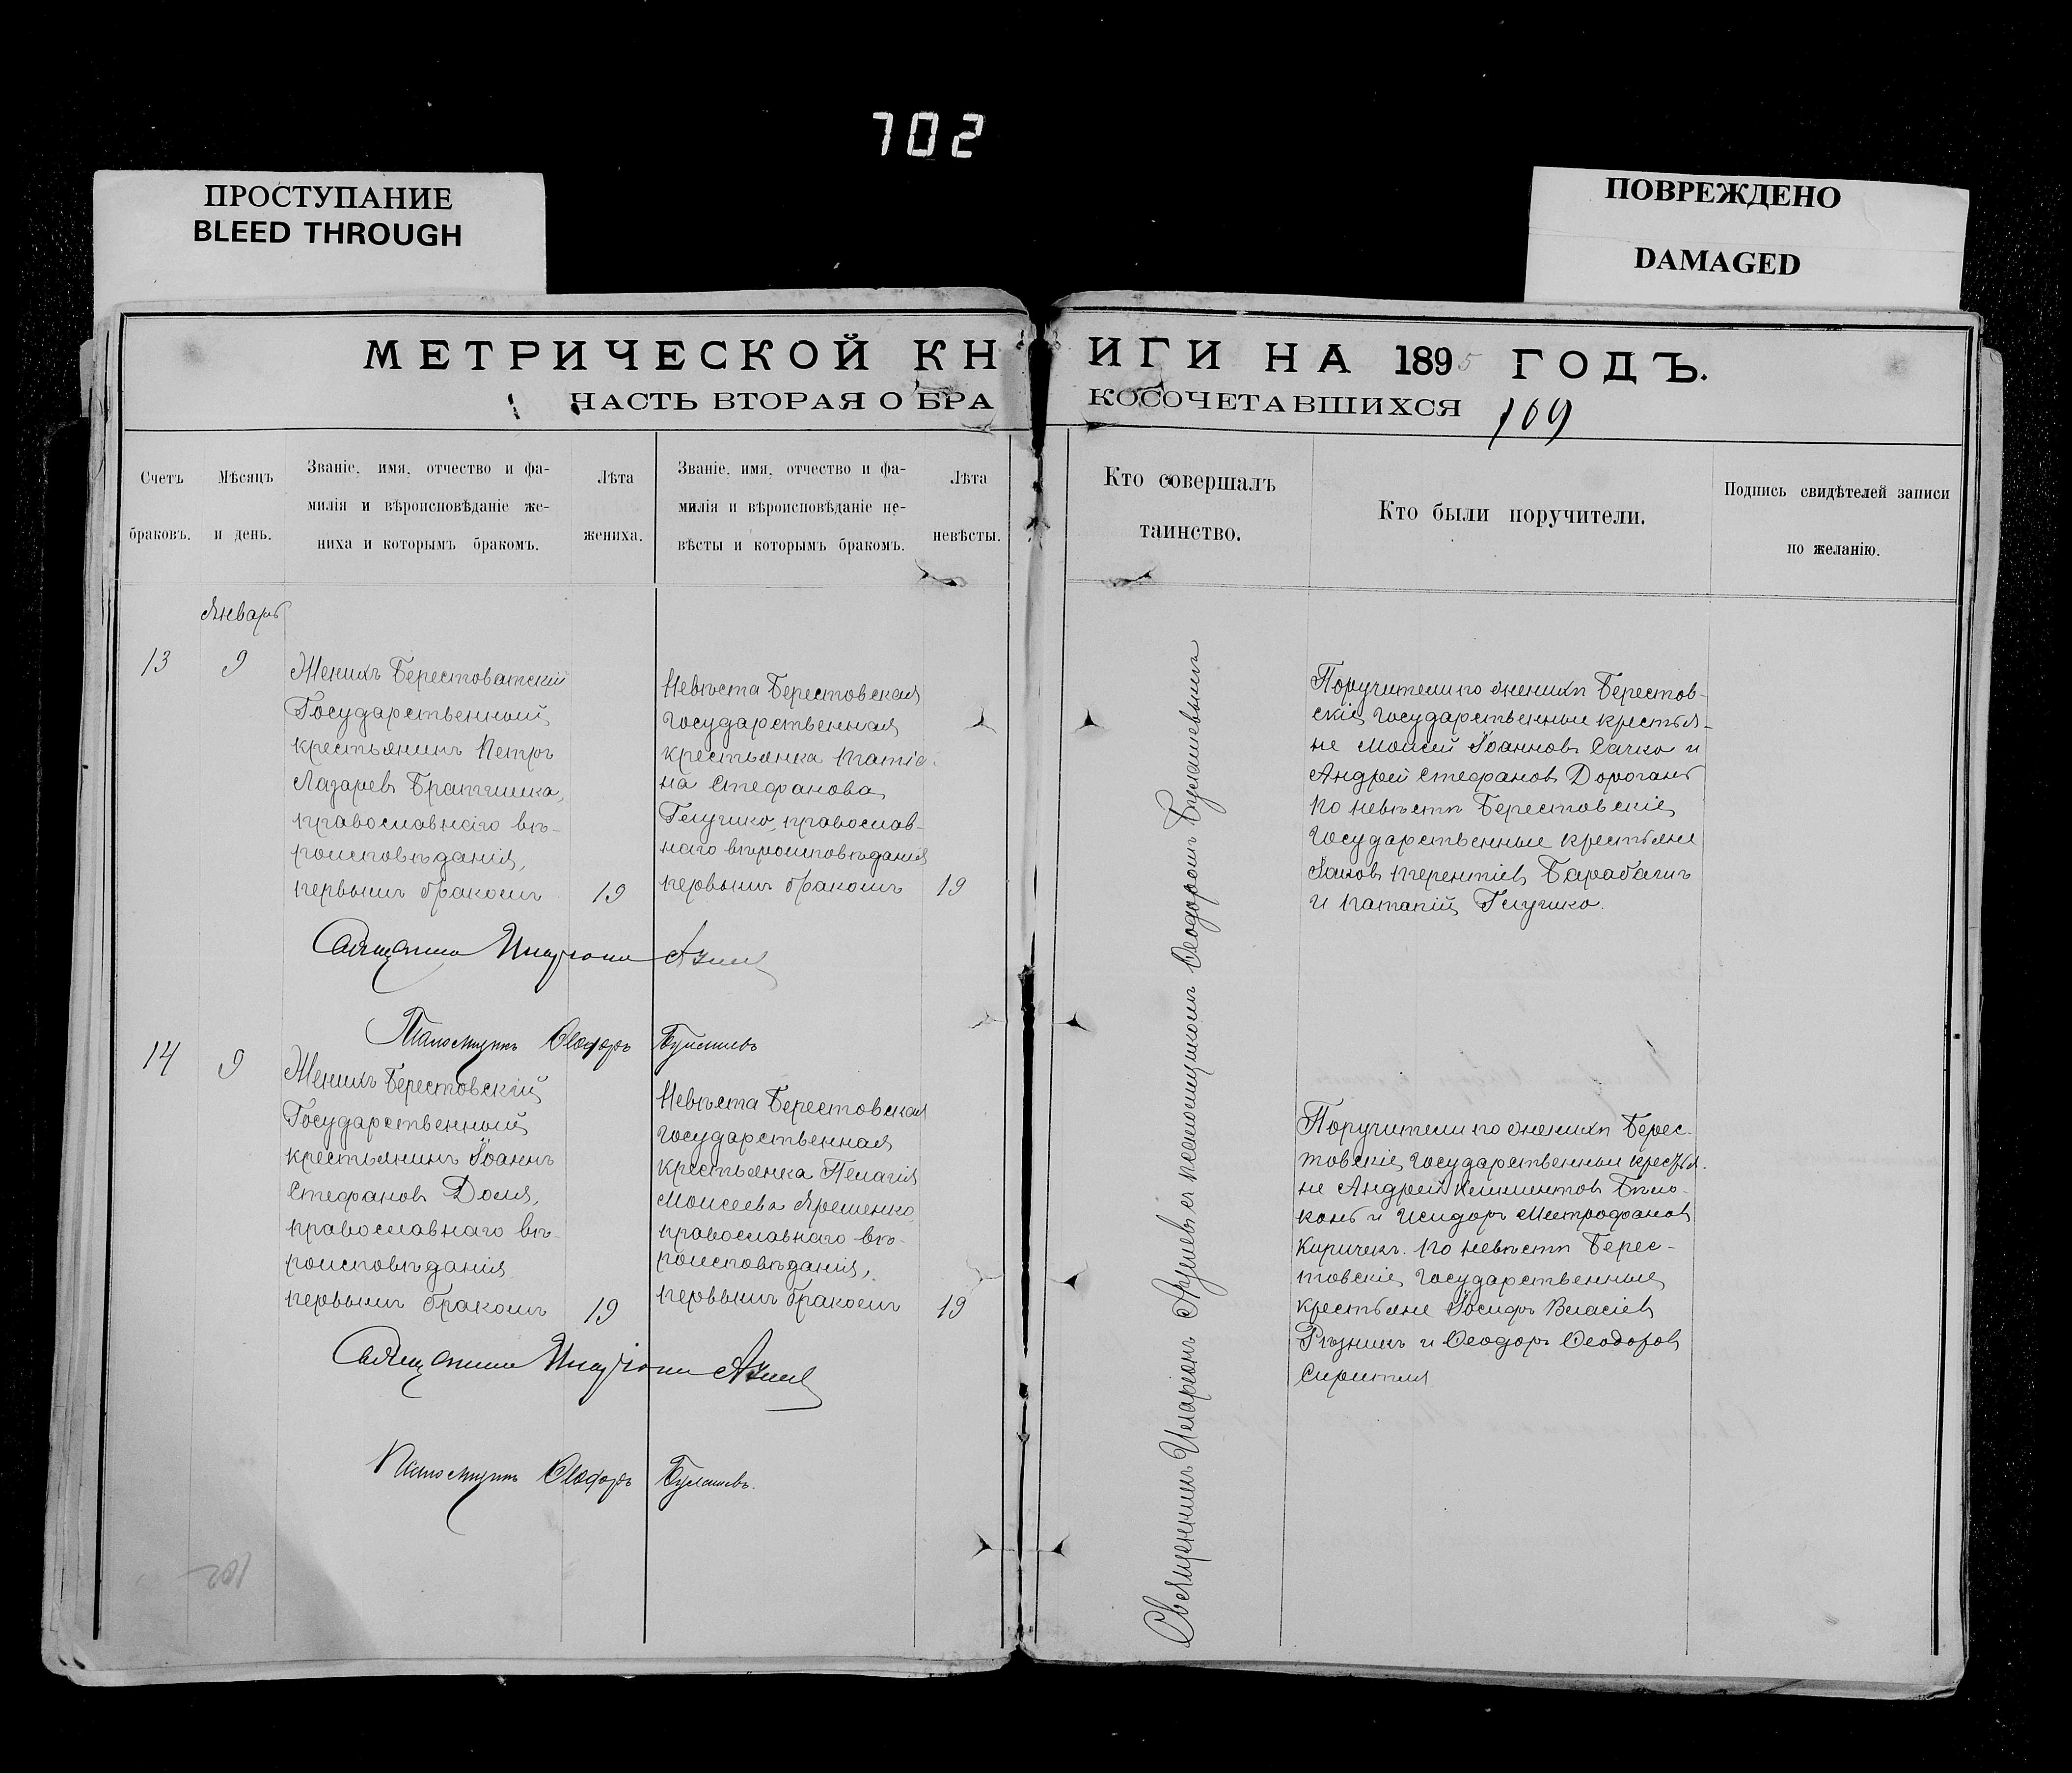 702
ПРОСТУПАНИЕ
BLEED THROUGH
ПОВРЕЖДЕНО
DAMAGED
МЕТРИЧЕСКОЙ КНИГИ НА 1895 ГОДЪ.
ЧАСТЬ ВТОРАЯ О БРАКОСОЧЕТАВШИХСЯ
109
Счетъ
браковъ.
Мѣсяцъ
и день.
Званіе, имя, отчество и фа-
милія и вѣроисповѣданіе же-
ниха и которымъ бракомъ.
Лѣта
жениха.
Званіе, имя, отчество и фа-
милія и вѣроисповѣданіе не-
вѣсты и которымъ бракомъ.
Лѣта
невѣсты.
Кто совершалъ
таинство.
Кто были поручители.
Подпись свидѣтелей записи
по желанію.
Январь
13
9
Женихъ
Государственный
крестьянинъ Петръ
Лазаревъ
православнаго вѣ-
роисповѣданія,
первымъ бракомъ
19
Невѣста Берестовская
государственная
крестьянка
на Стефанова
православ-
наго вѣроисповѣданія
первымъ бракомъ
19
Священникъ Иларіонъ
Псаломщикъ Ѳеодоръ
Священникъ Иларіонъ съ псаломщикомъ Ѳеодоромъ
Поручители по женихѣ Берестов-
скіе государственные крестья-
не Моисей Іоанновъ Сачко и
Андрей Стефановъ Дорогань
по невѣстѣ Берестовскіе
государственные крестьяне
Іаковъ Терентіевъ Барабашъ
и
14
9
Женихъ Берестовскій
Государственный
крестьянинъ Іоаннъ
Стефановъ Доля,
православнаго вѣ-
роисповѣданія
первымъ бракомъ
19
Невѣста Берестовская
государственная
крестьянка Пелагія
Моисеева Ярешенко
православнаго вѣ-
роисповѣданія,
первымъ бракомъ
19
Священникъ Иларіонъ
Псаломщикъ Ѳеодоръ
Поручители по женихѣ Берес-
товскіе государственные крестья-
не Андрей Климентовъ Бѣло-
конь и Исидоръ Митрофановъ
Киричекъ. по невѣстѣ Берес-
товскіе государственные
крестьяне Іосифъ Власіевъ
Рѣзникъ и Ѳеодоръ Ѳеодоровъ